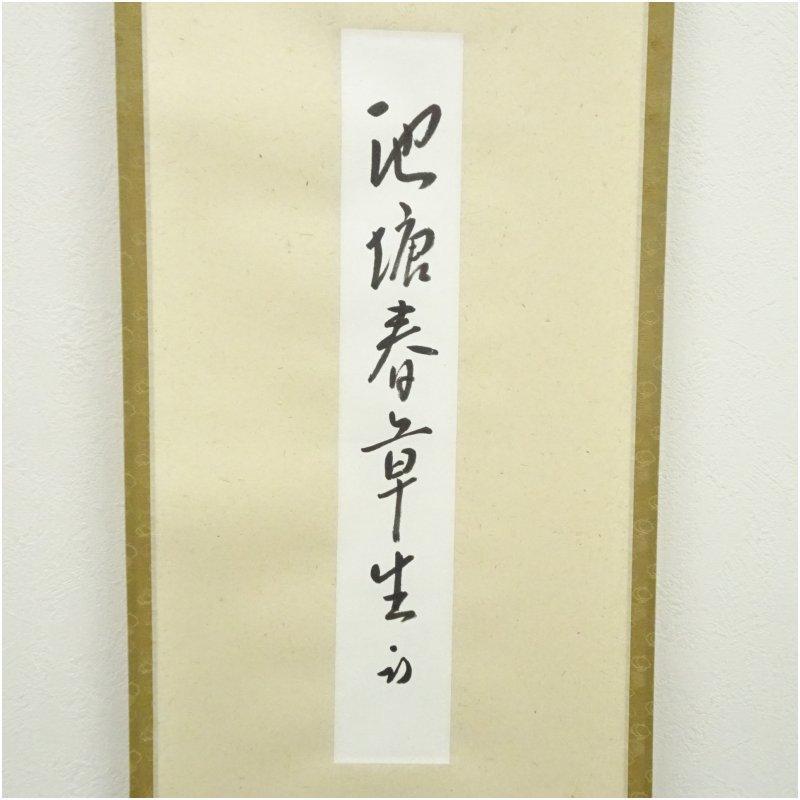 池塘春草生